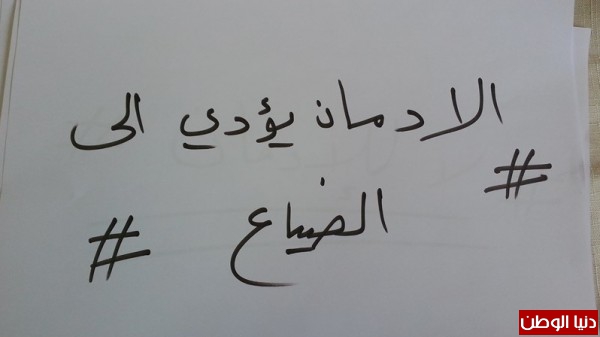 الادمان يؤدي الى
#
الضياع
#
دنيا الوطن